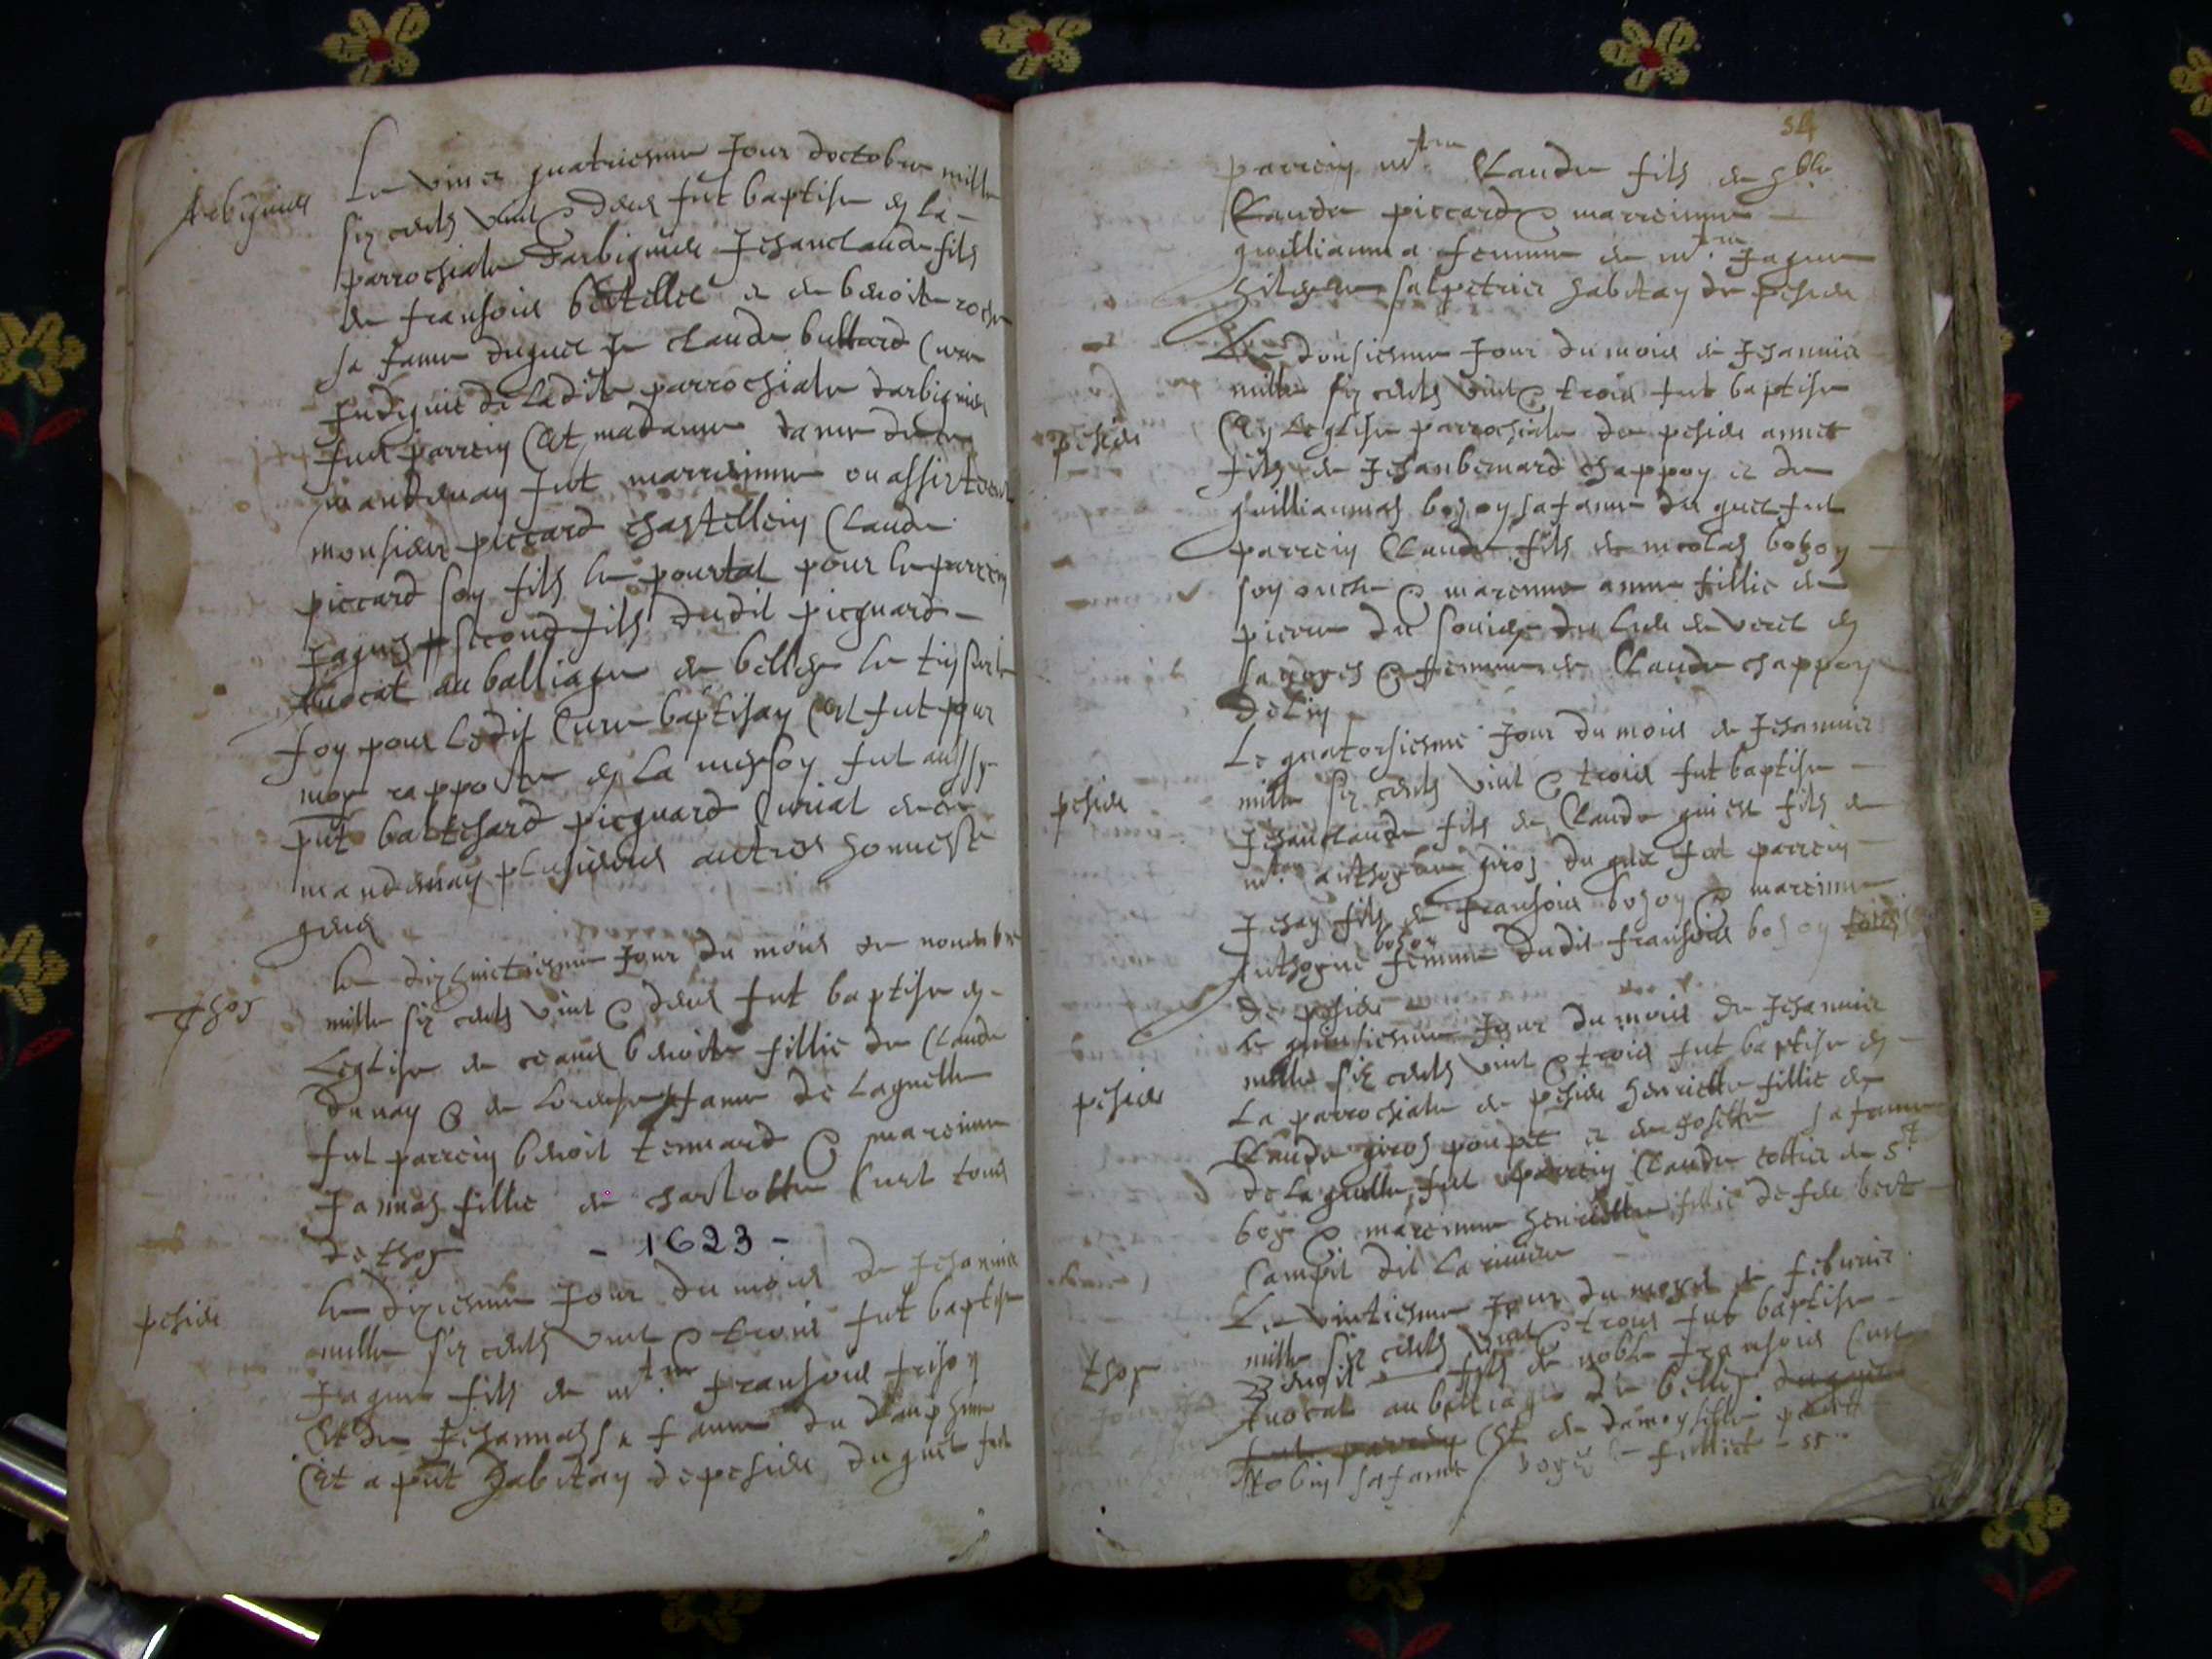 Arbignieu
Le vinct quatriesme Jour doctobre mille
six cents vint & deux fut baptise en La
parrochiale darbignieu Jehanclaude fils
de fransois bertellet et de benoite roche
sa fame duquel Je Claude buttard Cure
Indigne de Ladite parrochiale darbignieu
fus parrein Et madame dame de ce
mandemay fut marreinne ou assisterent
monsieur piccard chastellein Claude
piccard son fils le pourtat pour le parrein
Jaques second fils dudit picquard
Avocat au balliage de belley le tin sur le
foy pour Ledit Cure baptisay Et fut pour
moy rapporte en La meyson fut aussy
put baltesard picquard Curial de ce
mandemay plusieurs autres honneste
gens
Thoy
Le dixhuictiesme Jour du mois de novembre
mille six cents vint & deux fut baptise en
Leglise de ceans benoite fillie de Claude
dunay & de Loudese sa fame de Laquelle
fut parrein benoit tennard & mareinne
Jannas fillie de charlotte Curt tous
de thoy
- 1623 -
peisieu
Le dixiesme Jour du mois de Jehanvier
mille six cents vint & trois fut baptise
Jaques fils de mtre fransois frison
Et de Jehannas sa fame du dauphine
Et a put habitan de peisieu duquel fut
54
parrein mtre Claude fils de hble
Claude piccard & marreinne
guilliauma femme de mtre Jaques
salpetrier habitan de peisieu
peisieu
Le dousiesme Jour du mois de Jehanvier
mille six cents vint & trois fut baptise
En Leglise parrochiale de peisieu annet
fils de Jehanbernard chappon et de
guilliaumas boson sa fame duquel fut
parrein Claude fils de nicolas boson
son oncle & marenne anne fillie de
pierre du
& femme de Claude chappon
delin
peisieu
Le quatorsiesme Jour du mois de Jehanvier
mille six cents vint & trois fut baptise
Jehanclaude fils de Claude qui est fils de
mtre anthoyne giros duquel fut parrein
Jehan fils de fransois boson & mareinne
Anthoyne boson femme dudit fransois boson tous
de peisieu
peisieu
Le quinsiesme Jour du mois de Jehanvier
mille six cents vint & trois fut baptise en
La parrochiale de peisieu henriette fillie de
Claude giros poupet et de Josette sa fame
de Laquelle fut parrein Claude cottier de St
boys & mareinne henriette fillie de feu bert
Campit dit La riviere
thoy
Le vintiesme Jour du moys de febvrier
mille six cents vint & trois fut baptise
benoit fils de noble fransois Curt
Avocat au balliage de belley duquel
fut parrein Et de damoyselle
Robin sa fame